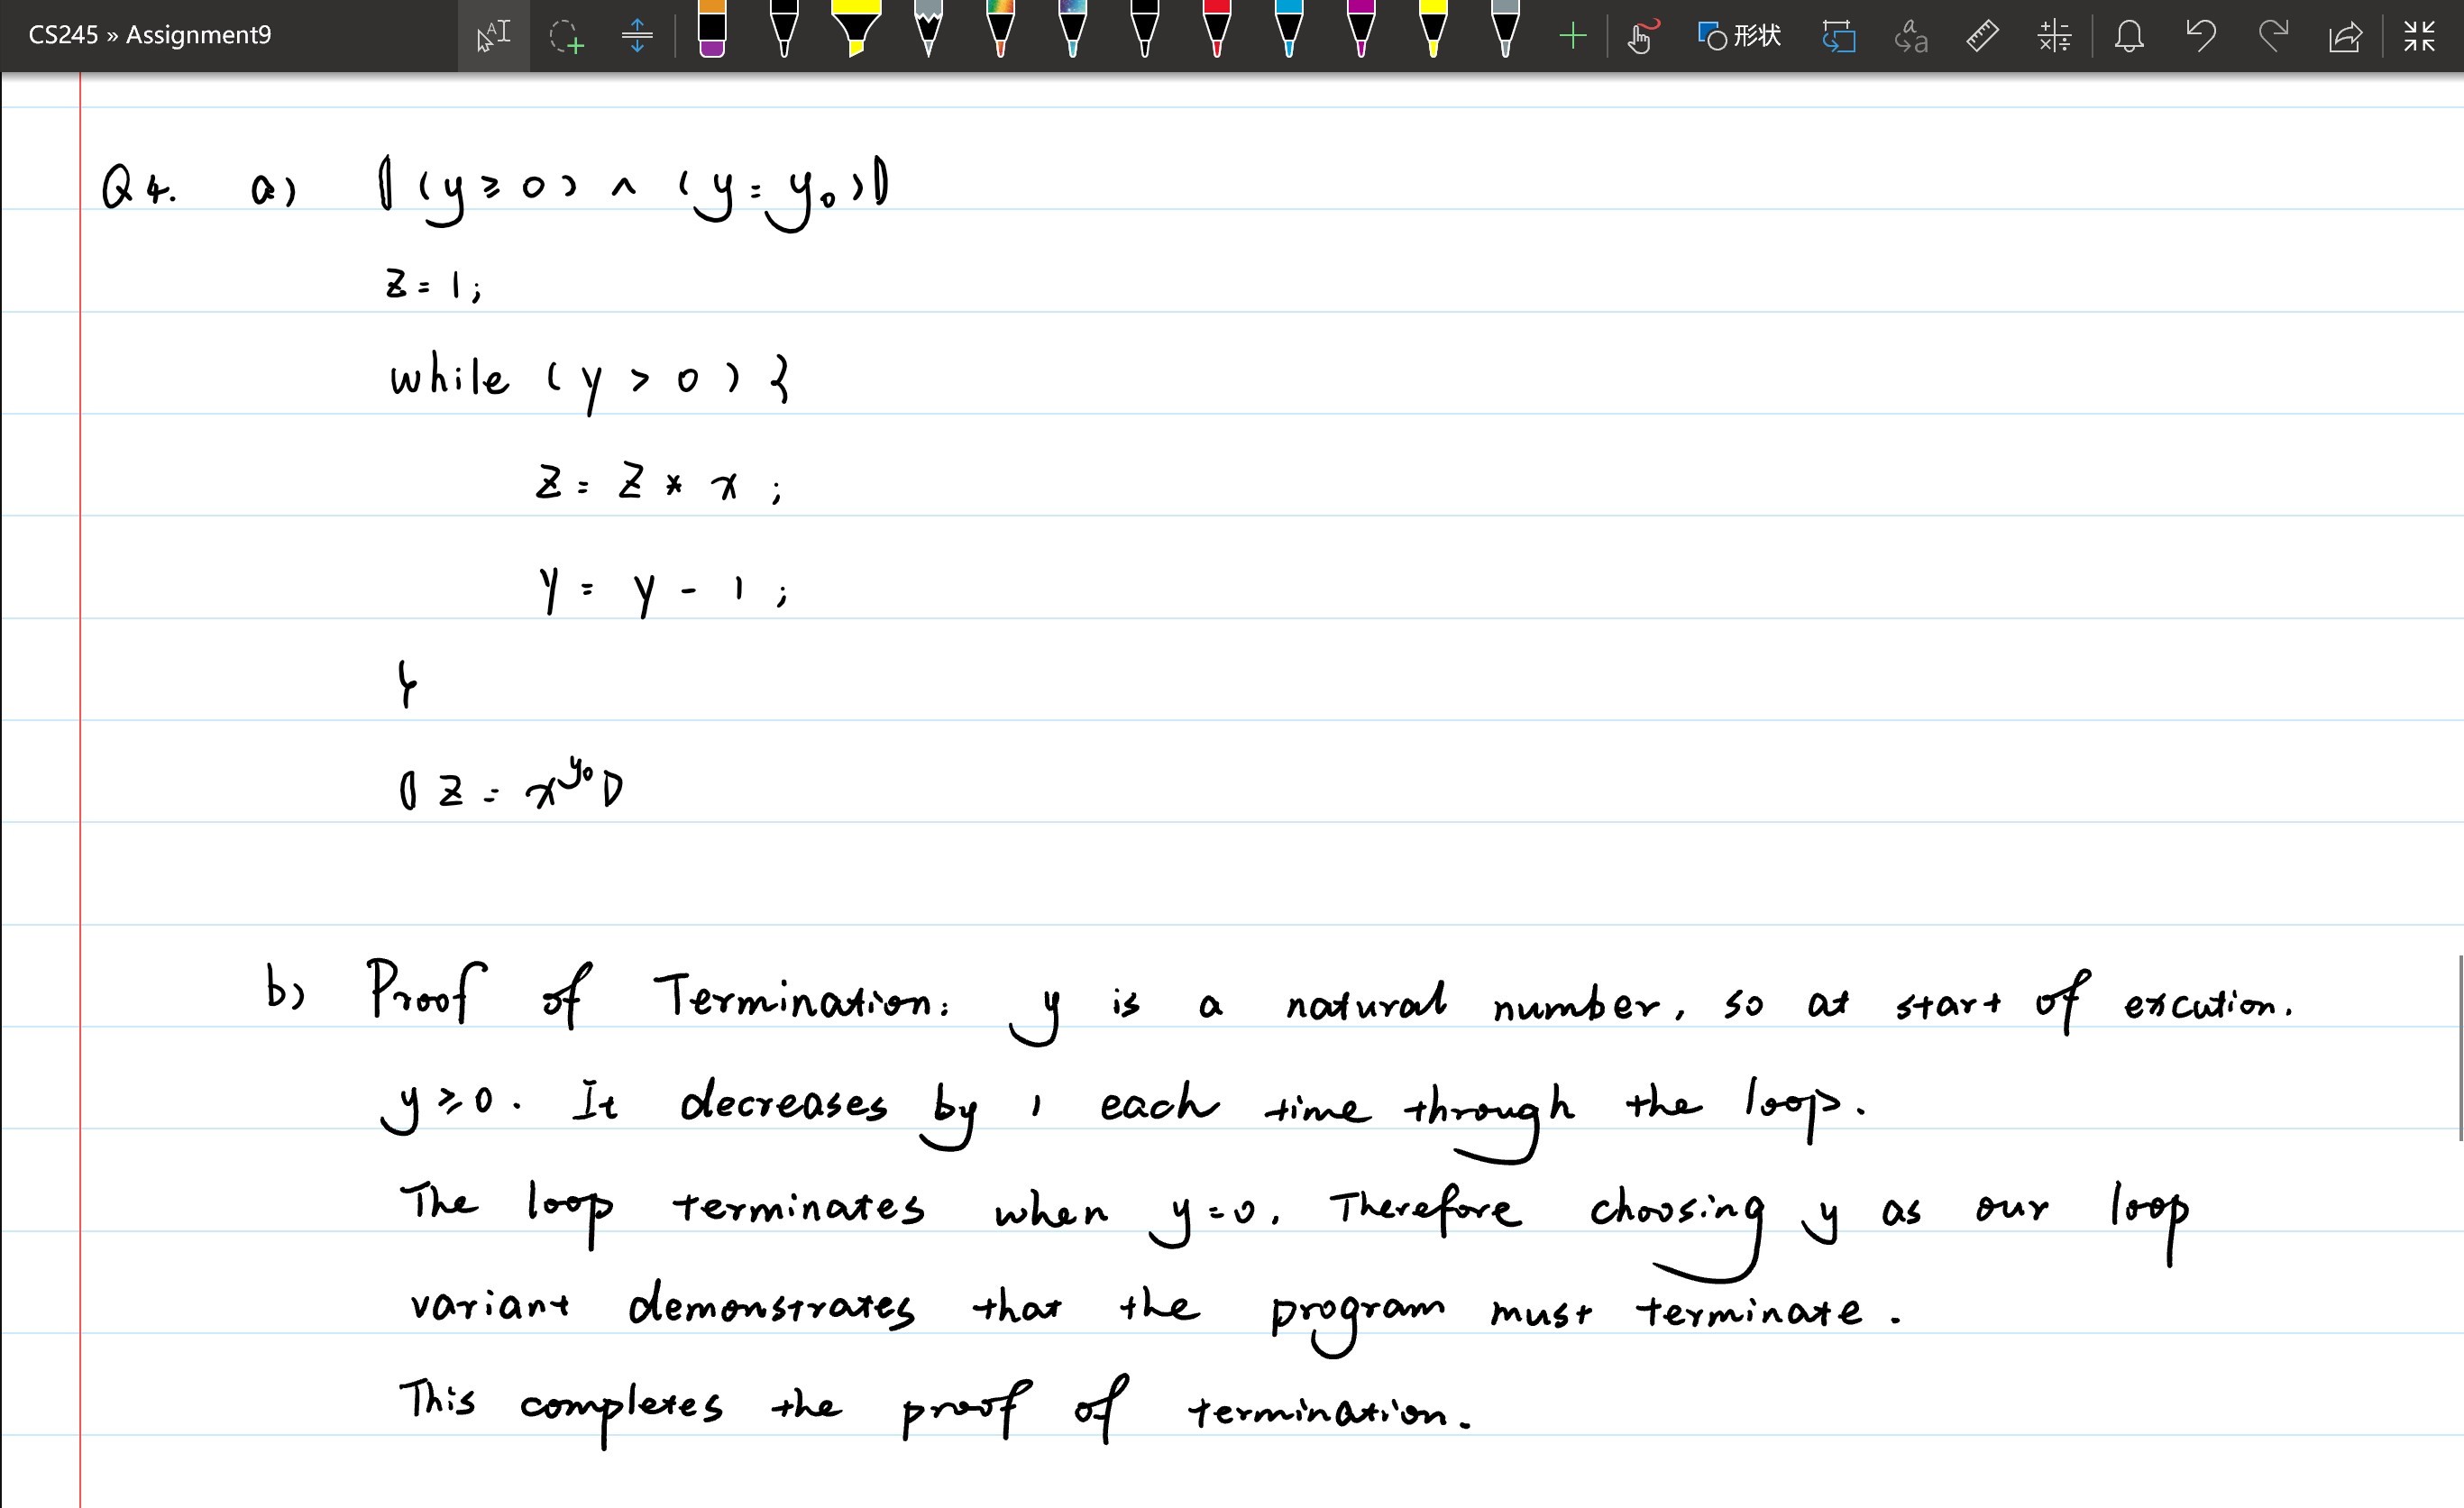 CS245 » Assignment9
形状
Q4. a) ⦇(y ≥ 0) ∧ (y = y₀)⦈
z = 1;
while (y > 0) {
z = z * x;
y = y - 1;
}
⦇z = x^y₀⦈
b) Proof of Termination: y is a natural number, so at start of excution.
y ≥ 0. It decreases by 1 each time through the loop.
The loop terminates when y=0. Therefore choosing y as our loop
variant demonstrates that the program must terminate.
This completes the proof of termination.